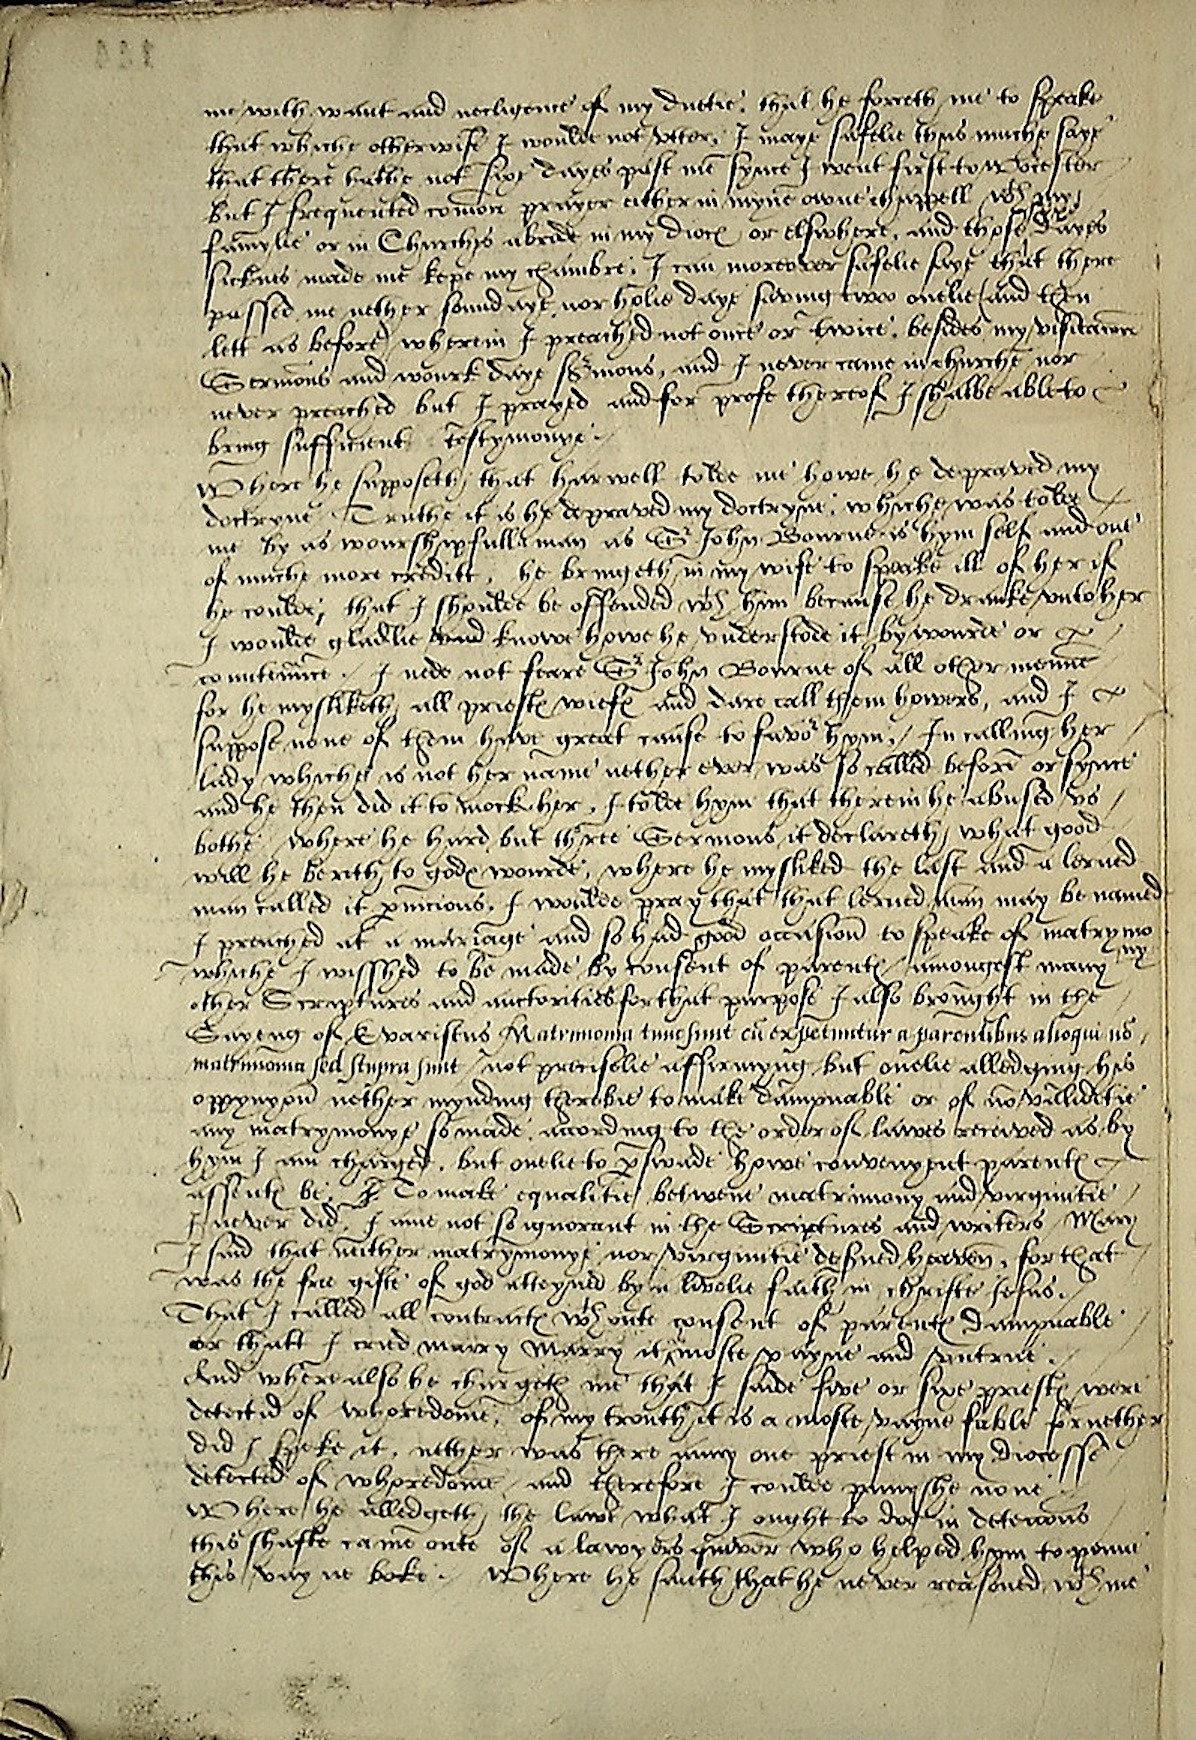 me with want and necligence of my duetie. that he forceth me to speake
that whiche otherwise I woulde not vtter, I maye safelie thus muche saye
that there hathe not sixe dayes past me synce I went first to worcester
But I frequented comon prayer either in myne owne chappell wth my
famylie or in Churches abrode in my dioc or elswhere, and those dayes
sicknis made me kepe my chambre, I can moreover safelie saye that there
passed me nether sondaye, nor holie daye saving two onelie and then
lett as before, wherein I preached not once or twice, besides my visitacion
Sermons and worck daye sermons, and I never came in churche nor
never preached but I prayed and for profe thereof I shalbe able to
bring sufficient testymonye.
Where he supposeth that harwell tolde me howe he depraved my
doctryne. Truthe it is he depraved my doctryne, whiche was tolde
me by as wourshipfull a man as Sr John Bourne is hym self and one
of muche more creditt, he bringeth in my wife to speake ill of her if
he coulde, that I shoulde be offended wth him because he dranke vnto her
I woulde gladlie knowe howe he vnderstode it by wourde or
countenance. I nede not feare Sr John Bourne of all other menne
for he mysliketh all priestes wiefes and dare call them howers, and I
suppose none of them have great cause to favor hym. In calling her
lady whiche is not her name nether ever was so called before or synce
and he then did it to mock her, I tolde hym that therein he abused vs
bothe. Where he hard but three Sermons it declareth what good
will he berith to godes wourde, where he mysliked the last and a lerned
man called it pernicious. I woulde pray that that lerned man may be named
I preached at a mariage and so had good occasion to speake of matrymo
ny
whiche I wisshed to be made by consent of parentes amongest many
other Scriptures and auctorities for that purpose I also brought in the
Sayeng of Evaristus Matrimonia tunc sunt cu expetuntur a parentibus alioqui no
matrimonia sed stupra sunt, not preciselie affirmyng but onelie alledging his
oppynyon nether mynding therebie to make dampnable or of no validitie
any matrymonye so made, according to the order of lawes received as by
hym I am charged, but onelie to perswade howe convenyent parentes
assentes be. To make equalitie betwene matrimony and virginitie
I never did, I ame not so ignorant in the Scriptures and writers Mary
I said that neither matrymonye nor virginitie deserved heaven, for that
was the free gifte of god atteyned by a livelie faith in christe Jesus.
That I called all contractes wthoute consent of parentes dampnable
or that I cried marry Marry it is moste vayne and vntrue.
And where also he chargeth me that I saide five or sixe priestes were
detectid of whoredome, of my trouth it is a moste vayne fable for nether
did I speke it, nether was there anny one priest in my diocesse
detected of whoredome, and therefore I coulde punyshe none.
Where he alledgeth the lawe what I ought to doe in detections
this shafte came oute of a lawyers quiver who helped hym to penne
this vayne boke. Where he saith that he never reasoned wth me